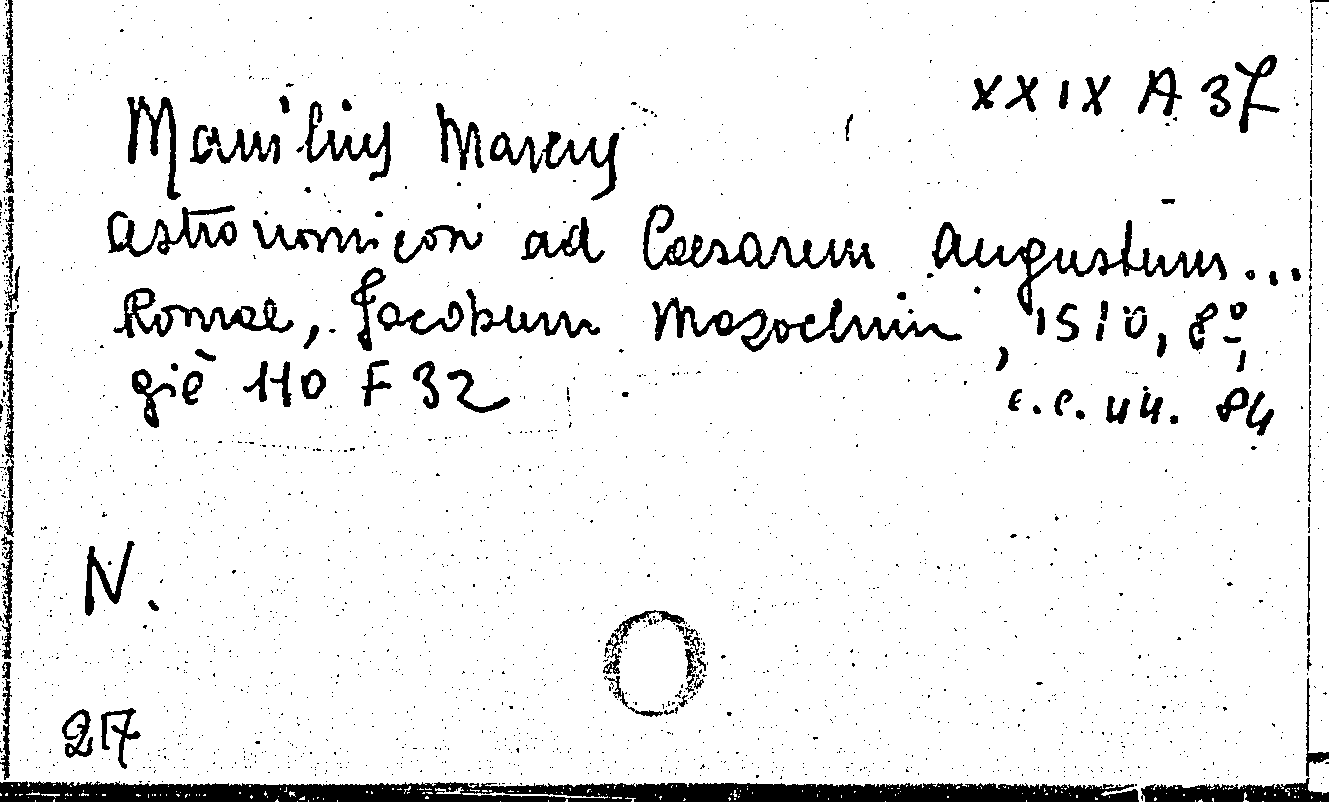 XXIX A 37
Manilius Marcus
Astronomicon ad Caesarem Augustum...
Romae, Jacobum Mazochium, 1510, 8º,
già 110 F 32 c.c. nn. 84
N.
217